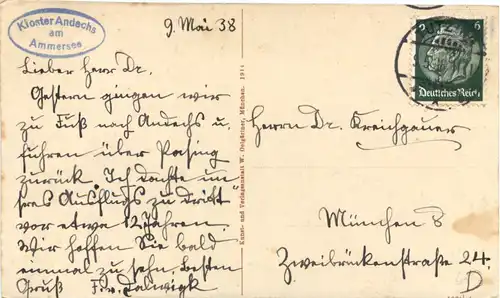 Kloster Andechs
am
Ammersee
9. Mai 38
Lieber Herr Dr.
Gestern gingen wir
zu Fuß nach Andechs u.
fuhren über Pasing
zurück. Ich dachte un
seres Ausflugs zu dritt
vor etwa 12 Jahren.
Wir hoffen Sie bald
einmal zu sehn. Besten
Gruß F. v. Dalwigk
Kunst- und Verlagsanstalt W. München. 1911
6
Deutsches Reich
Herrn Dr. Kreichgauer
München 8
Zweibrückenstraße 24.
D